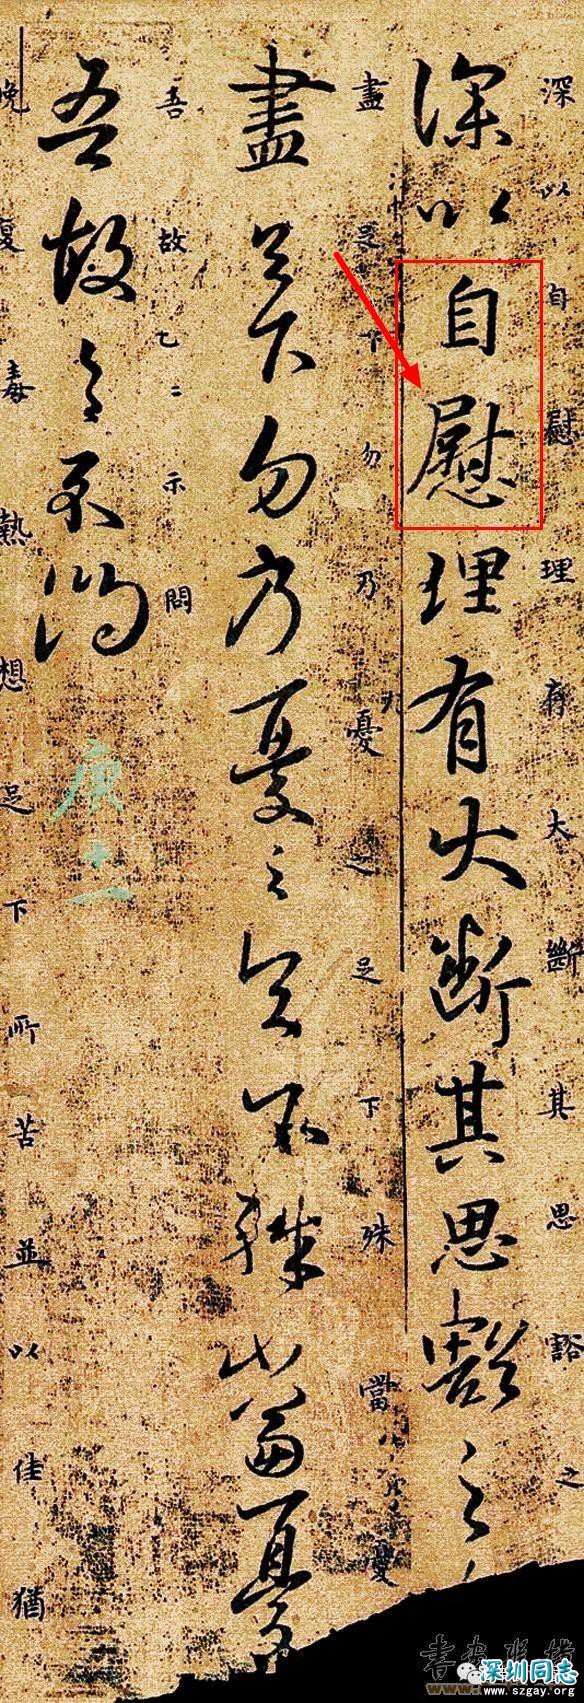 深以自慰理存大斷其思豁之
深以自慰理有大斷其思豁之
盡足下勿乃憂之足下殊當憂
盡足下勿乃憂之足下殊當憂
吾故乙二示問
吾故之示問
庚十二
晚復毒熱想足下所苦並以佳猶
深圳同志
www.szgay.org